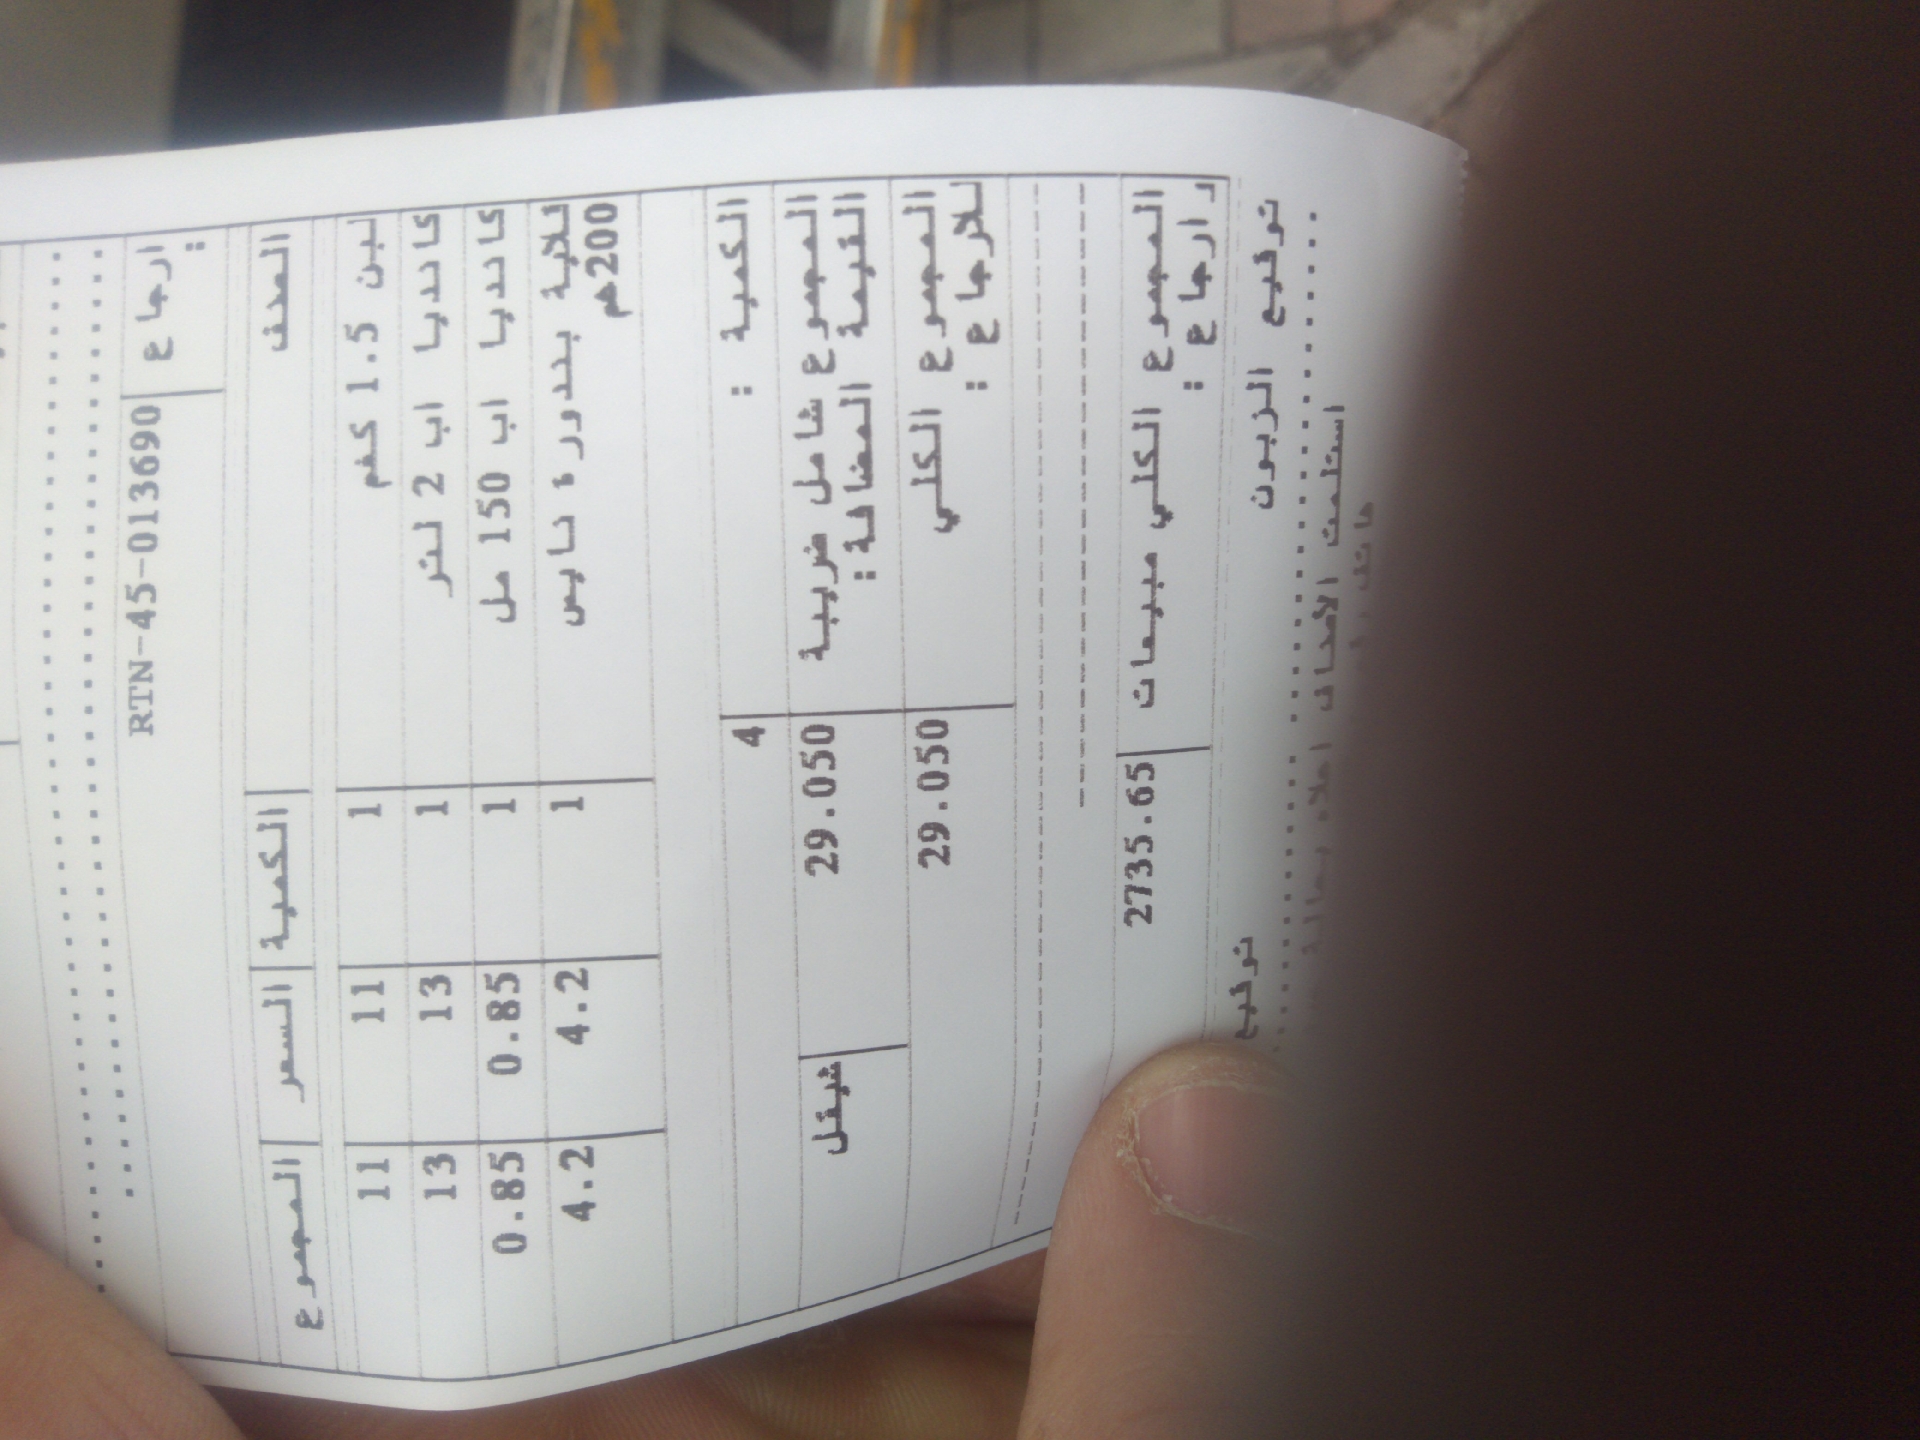 ارجاع : RTN-45-013690
الصنف الكمية السعر المجموع
لبن 1.5 كغم 1 11 11
كانديا اب 2 لتر 1 13 13
كانديا اب 150 مل 1 0.85 0.85
قلاية بندورة نايس 1 4.2 4.2
200غم
الكمية : 4
المجموع شامل ضريبة 29.050 شيقل
القيمة المضافة :
المجموع الكلي 29.050
للارجاع :
المجموع الكلي مبيعات 2735.65
و ارجاع :
توقيع الزبون توقيع
استلمت الأصناف اعلاه بحالة